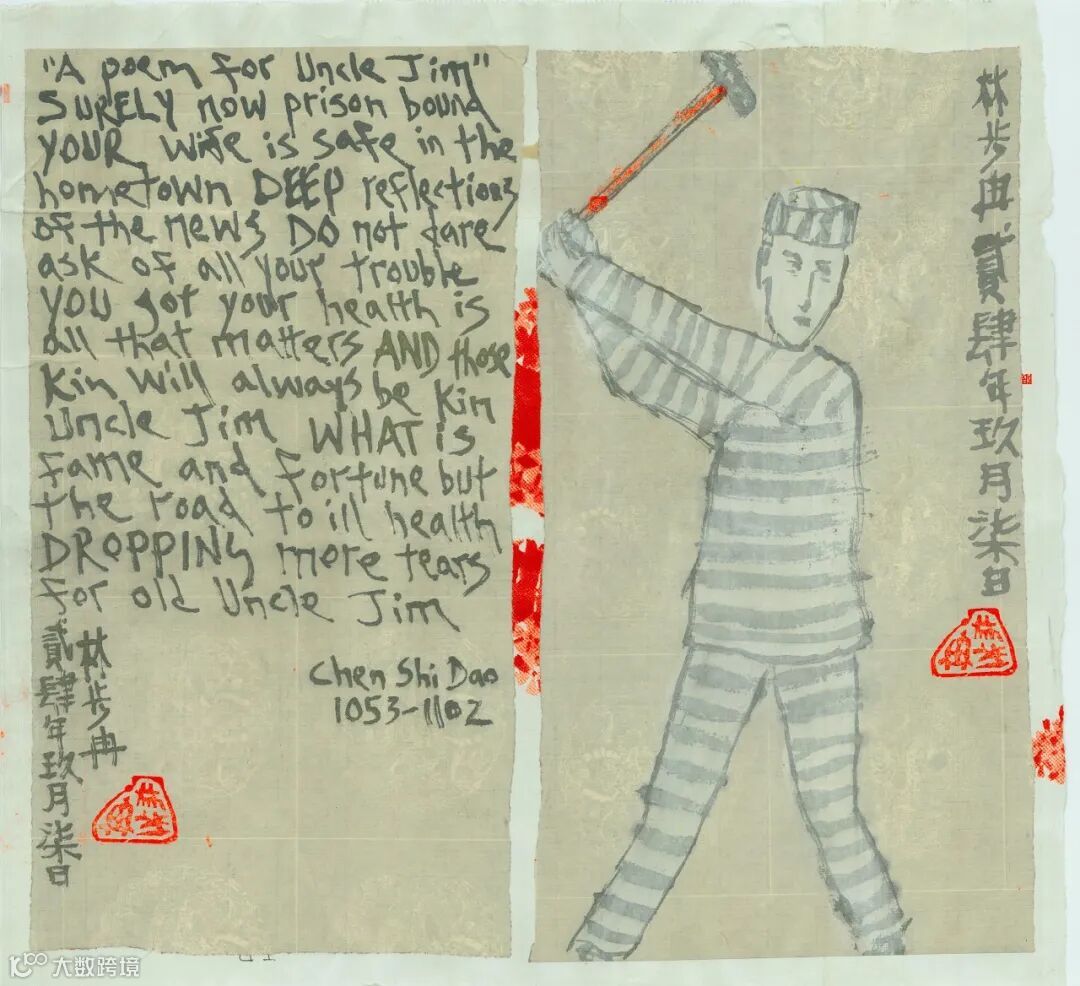 "A poem for Uncle Jim"
SURELY now prison bound
YOUR wife is safe in the
hometown DEEP reflections
of the news DO not dare
ask of all your trouble
YOU got your health is
all that matters AND those
Kin will always be kin
Uncle Jim WHAT is
fame and fortune but
the road to ill health
DROPPING more tears
for old Uncle Jim
Chen Shi Dao
1053-1102
林步冉
貳肆年玖月柒日
林步冉貳肆年玖月柒日
大数跨境